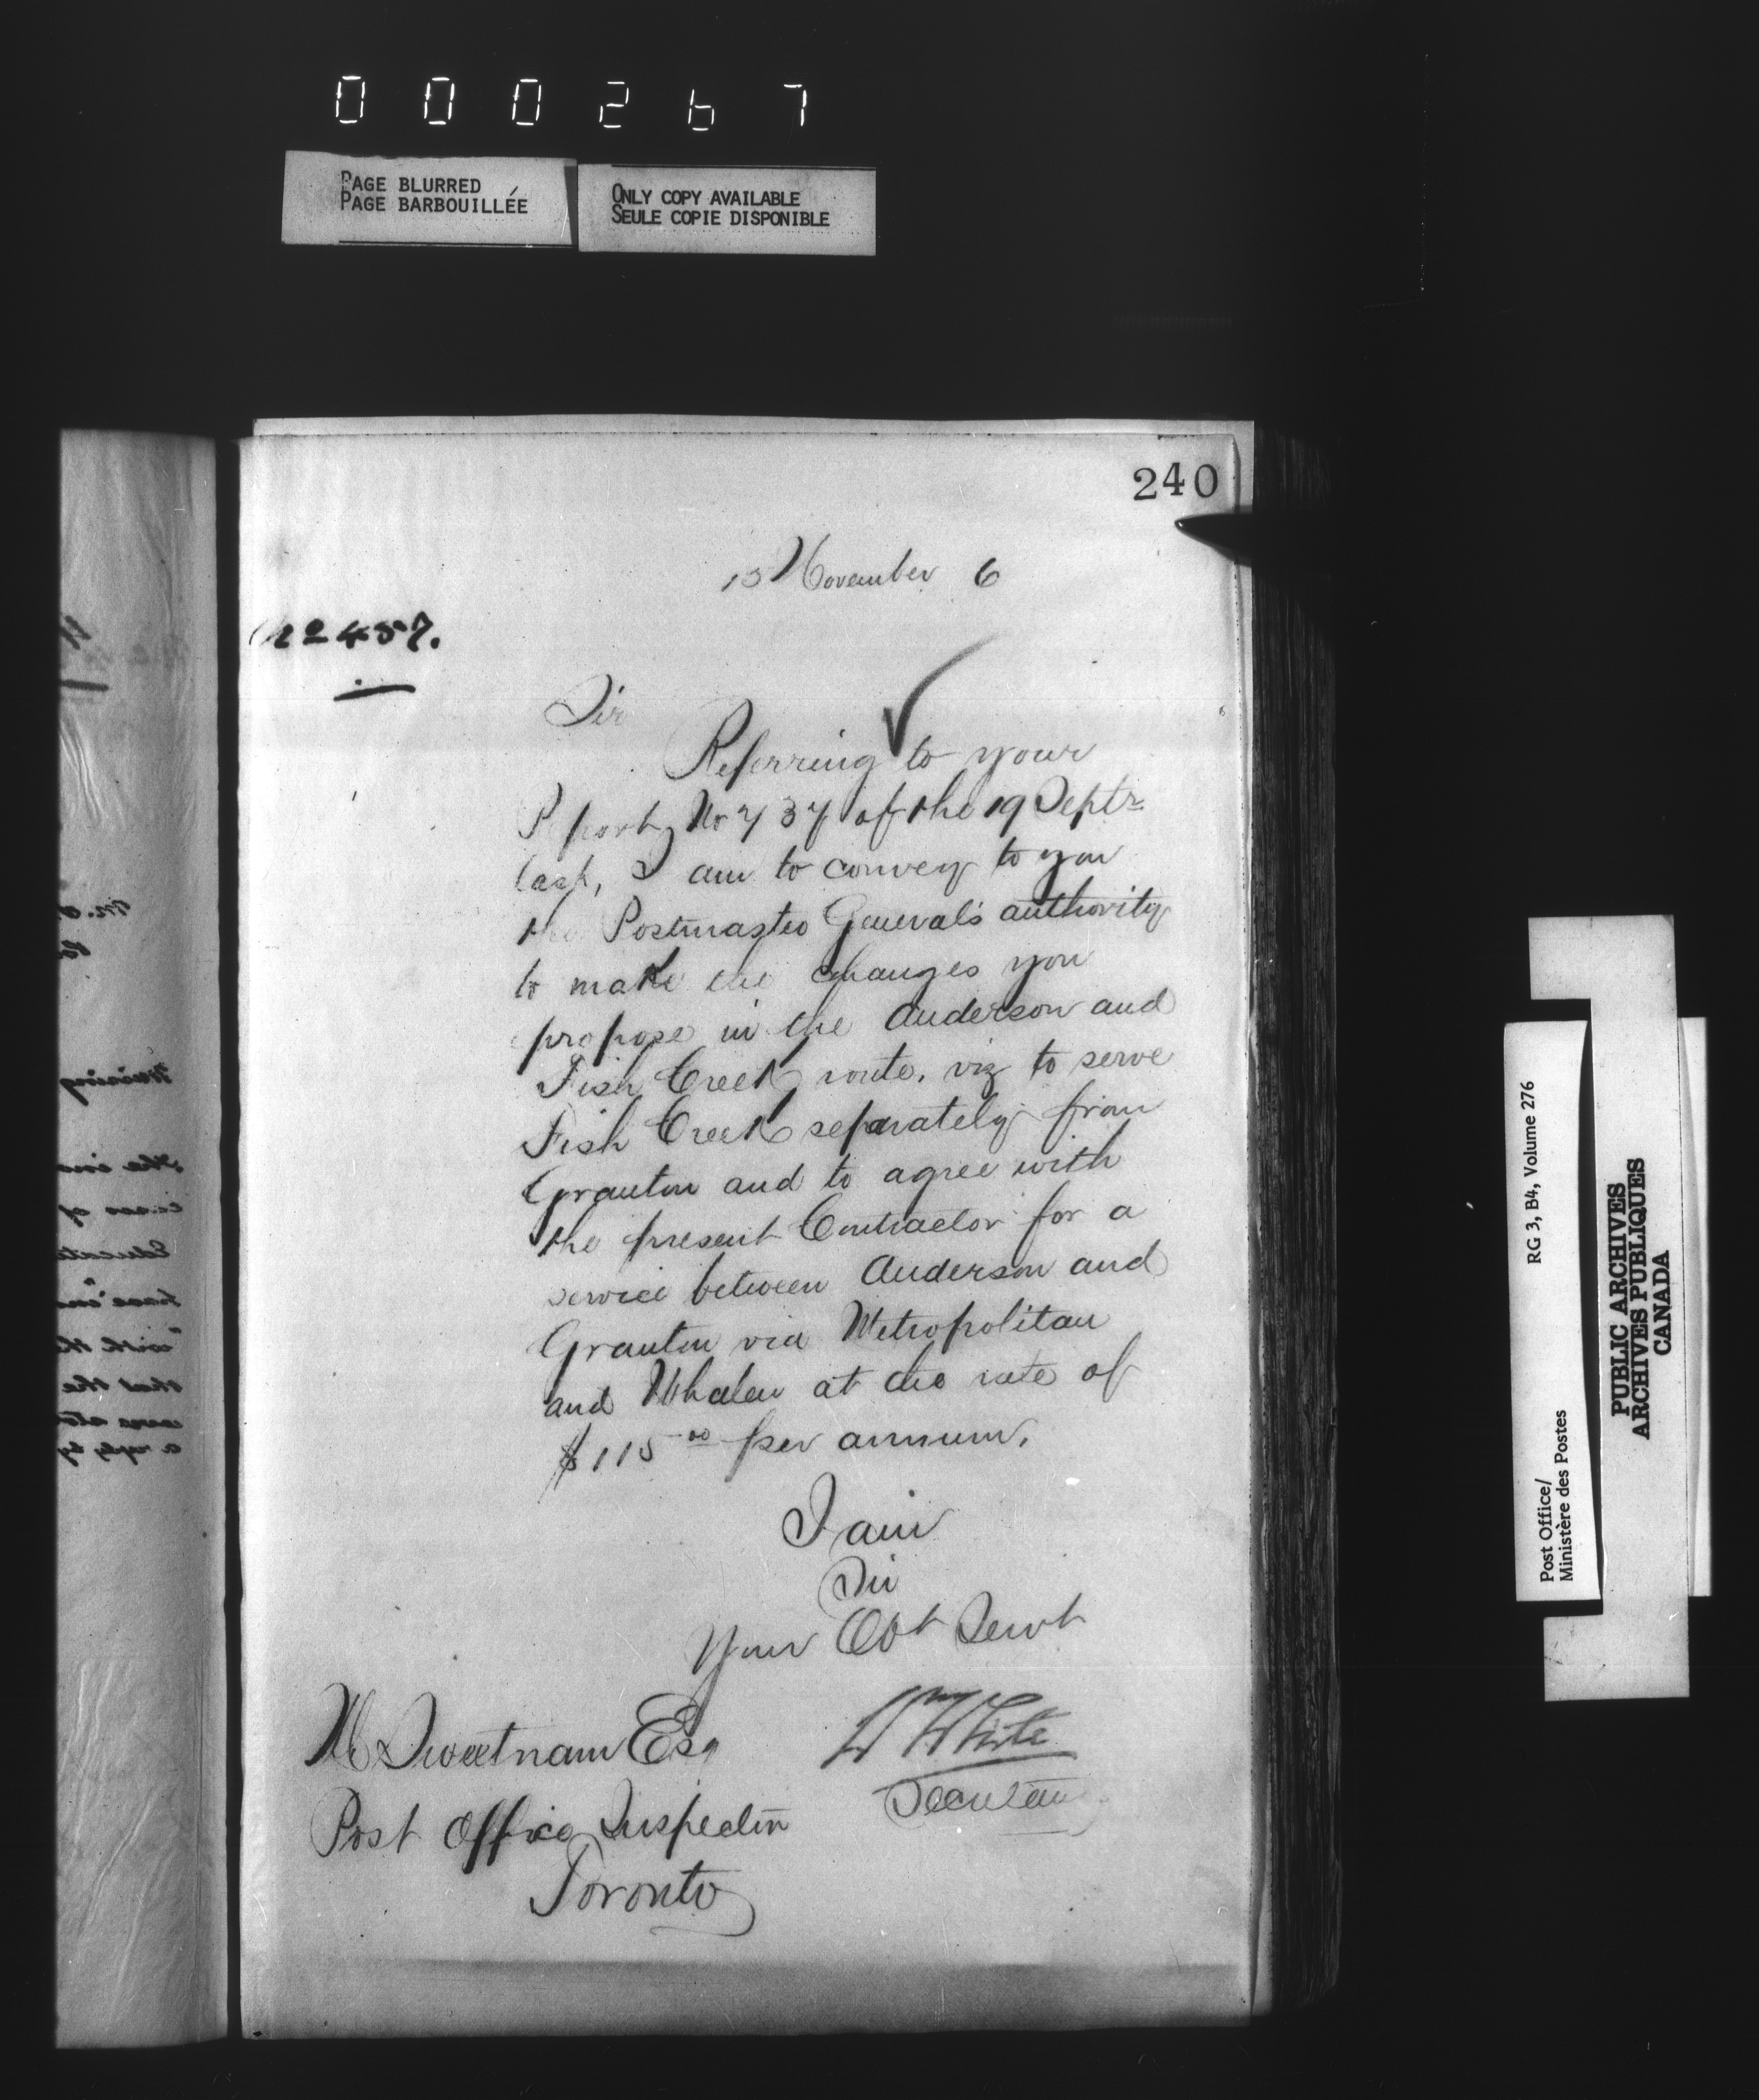 000267
PAGE BLURRED
PAGE BARBOUILLÉE
ONLY COPY AVAILABLE
SEULE COPIE DISPONIBLE
240
13 November 6
No 457.
Sir
Referring to your
Report No 737 of the 19 Septr
last, I am to convey to you
the Postmaster General's authority
to make the changes you
propose in the Anderson and
Fish Creek route, viz to serve
Fish Creek separately from
Granton and to agree with
the present Contractor for a
service between Anderson and
Granton via Metropolitan
and Whalen at the rate of
$115 00 per annum.
I am
Sir
Your Obt Servt
Wm White
Secretary
M Sweetnam Esq
Post Office Inspector
Toronto
RG 3, B4, Volume 276
Post Office/
Ministère des Postes
PUBLIC ARCHIVES
ARCHIVES PUBLIQUES
CANADA